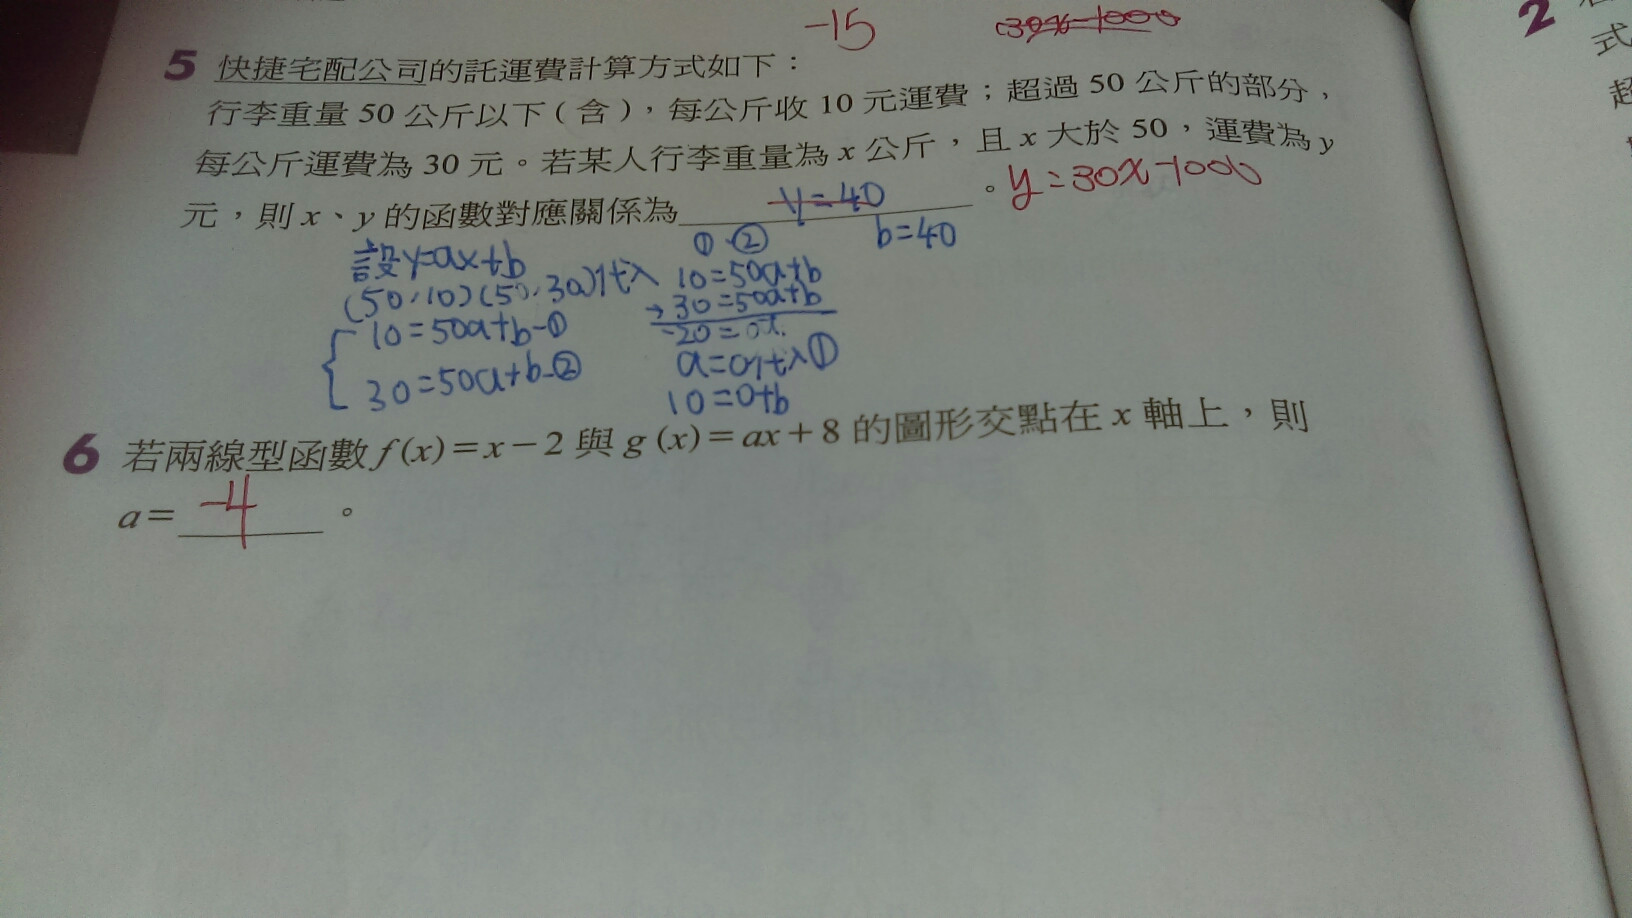 -15
5 快捷宅配公司的託運費計算方式如下：
行李重量 50 公斤以下（含），每公斤收 10 元運費；超過 50 公斤的部分，
每公斤運費為 30 元。若某人行李重量為 x 公斤，且 x 大於 50，運費為 y
元，則 x、y 的函數對應關係為 y=40 。 y=30x-1000
① ② b=40
設y=ax+b
(50,10)(50,30)代入
10=50a+b-①
30=50a+b-②
10=50a+b
30=50a+b
-20=0
a=0代入①
10=0+b
6 若兩線型函數 f(x)=x-2 與 g(x)=ax+8 的圖形交點在 x 軸上，則
a= -4 。
2
式
超